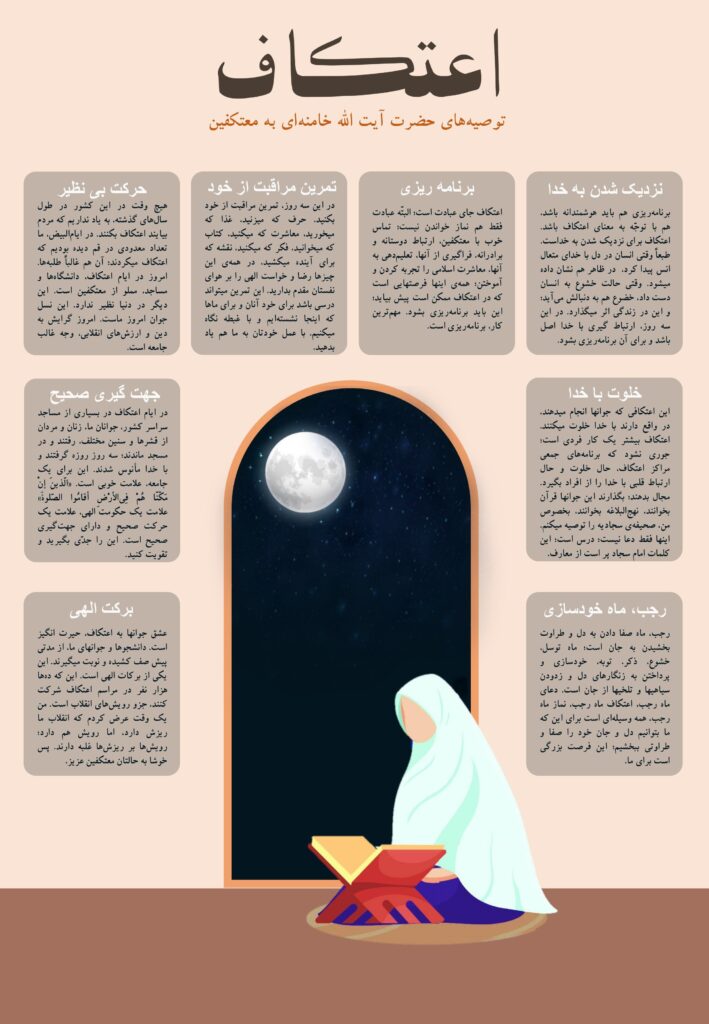 اعتکاف
توصیه‌های حضرت آیت الله خامنه‌ای به معتکفین
نزدیک شدن به خدا
برنامه‌ریزی هم باید هوشمندانه باشد،
هم با توجّه به معنای اعتکاف باشد.
اعتکاف برای نزدیک شدن به خداست.
طبعاً وقتی انسان در دل با خدای متعال
انس پیدا کرد، در ظاهر هم نشان داده
میشود. وقتی حالت خشوع به انسان
دست داد، خضوع هم به دنبالش می‌آید؛
و این در زندگی اثر میگذارد. در این
سه روز، ارتباط گیری با خدا اصل
باشد و برای آن برنامه‌ریزی بشود.
برنامه ریزی
اعتکاف جای عبادت است؛ البتّه عبادت
فقط هم نماز خواندن نیست؛ تماس
خوب با معتکفین، ارتباط دوستانه و
برادرانه، فراگیری از آنها، تعلیم‌دهی به
آنها، معاشرت اسلامی را تجربه کردن و
آموختن؛ همه‌ی اینها فرصتهایی است
که در اعتکاف ممکن است پیش بیاید؛
این باید برنامه‌ریزی بشود. مهم‌ترین
کار، برنامه‌ریزی است.
تمرین مراقبت از خود
در این سه روز، تمرین مراقبت از خود
بکنید. حرف که میزنید، غذا که
میخورید، معاشرت که میکنید، کتاب
که میخوانید، فکر که میکنید، نقشه که
برای آینده میکشید، در همه‌ی این
چیزها رضا و خواست الهی را بر هوای
نفستان مقدم بدارید. این تمرین میتواند
درسی باشد برای خود آنان و برای ماها
که اینجا نشسته‌ایم و با غبطه نگاه
میکنیم. با عمل خودتان به ما هم یاد
بدهید.
حرکت بی نظیر
هیچ وقت در این کشور در طول
سال‌های گذشته، به یاد نداریم که مردم
بیایند اعتکاف بکنند. در ایام‌البیض، ما
تعداد معدودی در قم دیده بودیم که
اعتکاف میکردند؛ آن هم غالباً طلبه‌ها.
امروز در ایام اعتکاف، دانشگاه‌ها و
مساجد، مملو از معتکفین است. این
دیگر در دنیا نظیر ندارد. این نسل
جوان امروز ماست. امروز گرایش به
دین و ارزش‌های انقلابی، وجه غالب
جامعه است.
خلوت با خدا
این اعتکافی که جوانها انجام میدهند،
در واقع دارند با خدا خلوت میکنند.
اعتکاف بیشتر یک کار فردی است؛
جوری نشود که برنامه‌های جمعی
مراکز اعتکاف، حال خلوت و حال
ارتباط قلبی با خدا را از افراد بگیرد.
مجال بدهند؛ بگذارند این جوانها قرآن
بخوانند، نهج‌البلاغه بخوانند، بخصوص
من، صحیفه‌ی سجادیه را توصیه میکنم.
اینها فقط دعا نیست؛ درس است؛ این
کلمات امام سجاد پر است از معارف.
جهت گیری صحیح
در ایام اعتکاف در بسیاری از مساجد
سراسر کشور، جوانان ما، زنان و مردان
از قشرها و سنین مختلف، رفتند و در
مسجد ماندند؛ سه روز روزه گرفتند و
با خدا مأنوس شدند. این برای یک
جامعه، علامت خوبی است. «الَّذینَ إِنْ
مَکَنّا هُمْ فِی‌الأَرْضِ أَقامُوا الصَّلوةَ»
علامت یک حکومت الهی، علامت یک
حرکت صحیح و دارای جهت‌گیری
صحیح است. این را جدّی بگیرید و
تقویت کنید.
رجب، ماه خودسازی
رجب، ماه صفا دادن به دل و طراوت
بخشیدن به جان است؛ ماه توسل،
خشوع، ذکر، توبه، خودسازی و
پرداختن به زنگارهای دل و زدودن
سیاهیها و تلخیها از جان است. دعای
ماه رجب، اعتکاف ماه رجب، نماز ماه
رجب، همه وسیله‌ای است برای این که
ما بتوانیم دل و جان خود را صفا و
طراوتی ببخشیم؛ این فرصت بزرگی
است برای ما.
برکت الهی
عشق جوانها به اعتکاف، حیرت انگیز
است. دانشجوها و جوانهای ما، از مدتی
پیش صف کشیده و نوبت میگیرند. این
یکی از برکات الهی است. این که ده‌ها
هزار نفر در مراسم اعتکاف شرکت
کنند، جزو رویش‌های انقلاب است. من
یک وقت عرض کردم که انقلاب ما
ریزش دارد، اما رویش هم دارد؛
رویش‌ها بر ریزش‌ها غلبه دارند. پس
خوشا به حالتان معتکفین عزیز.